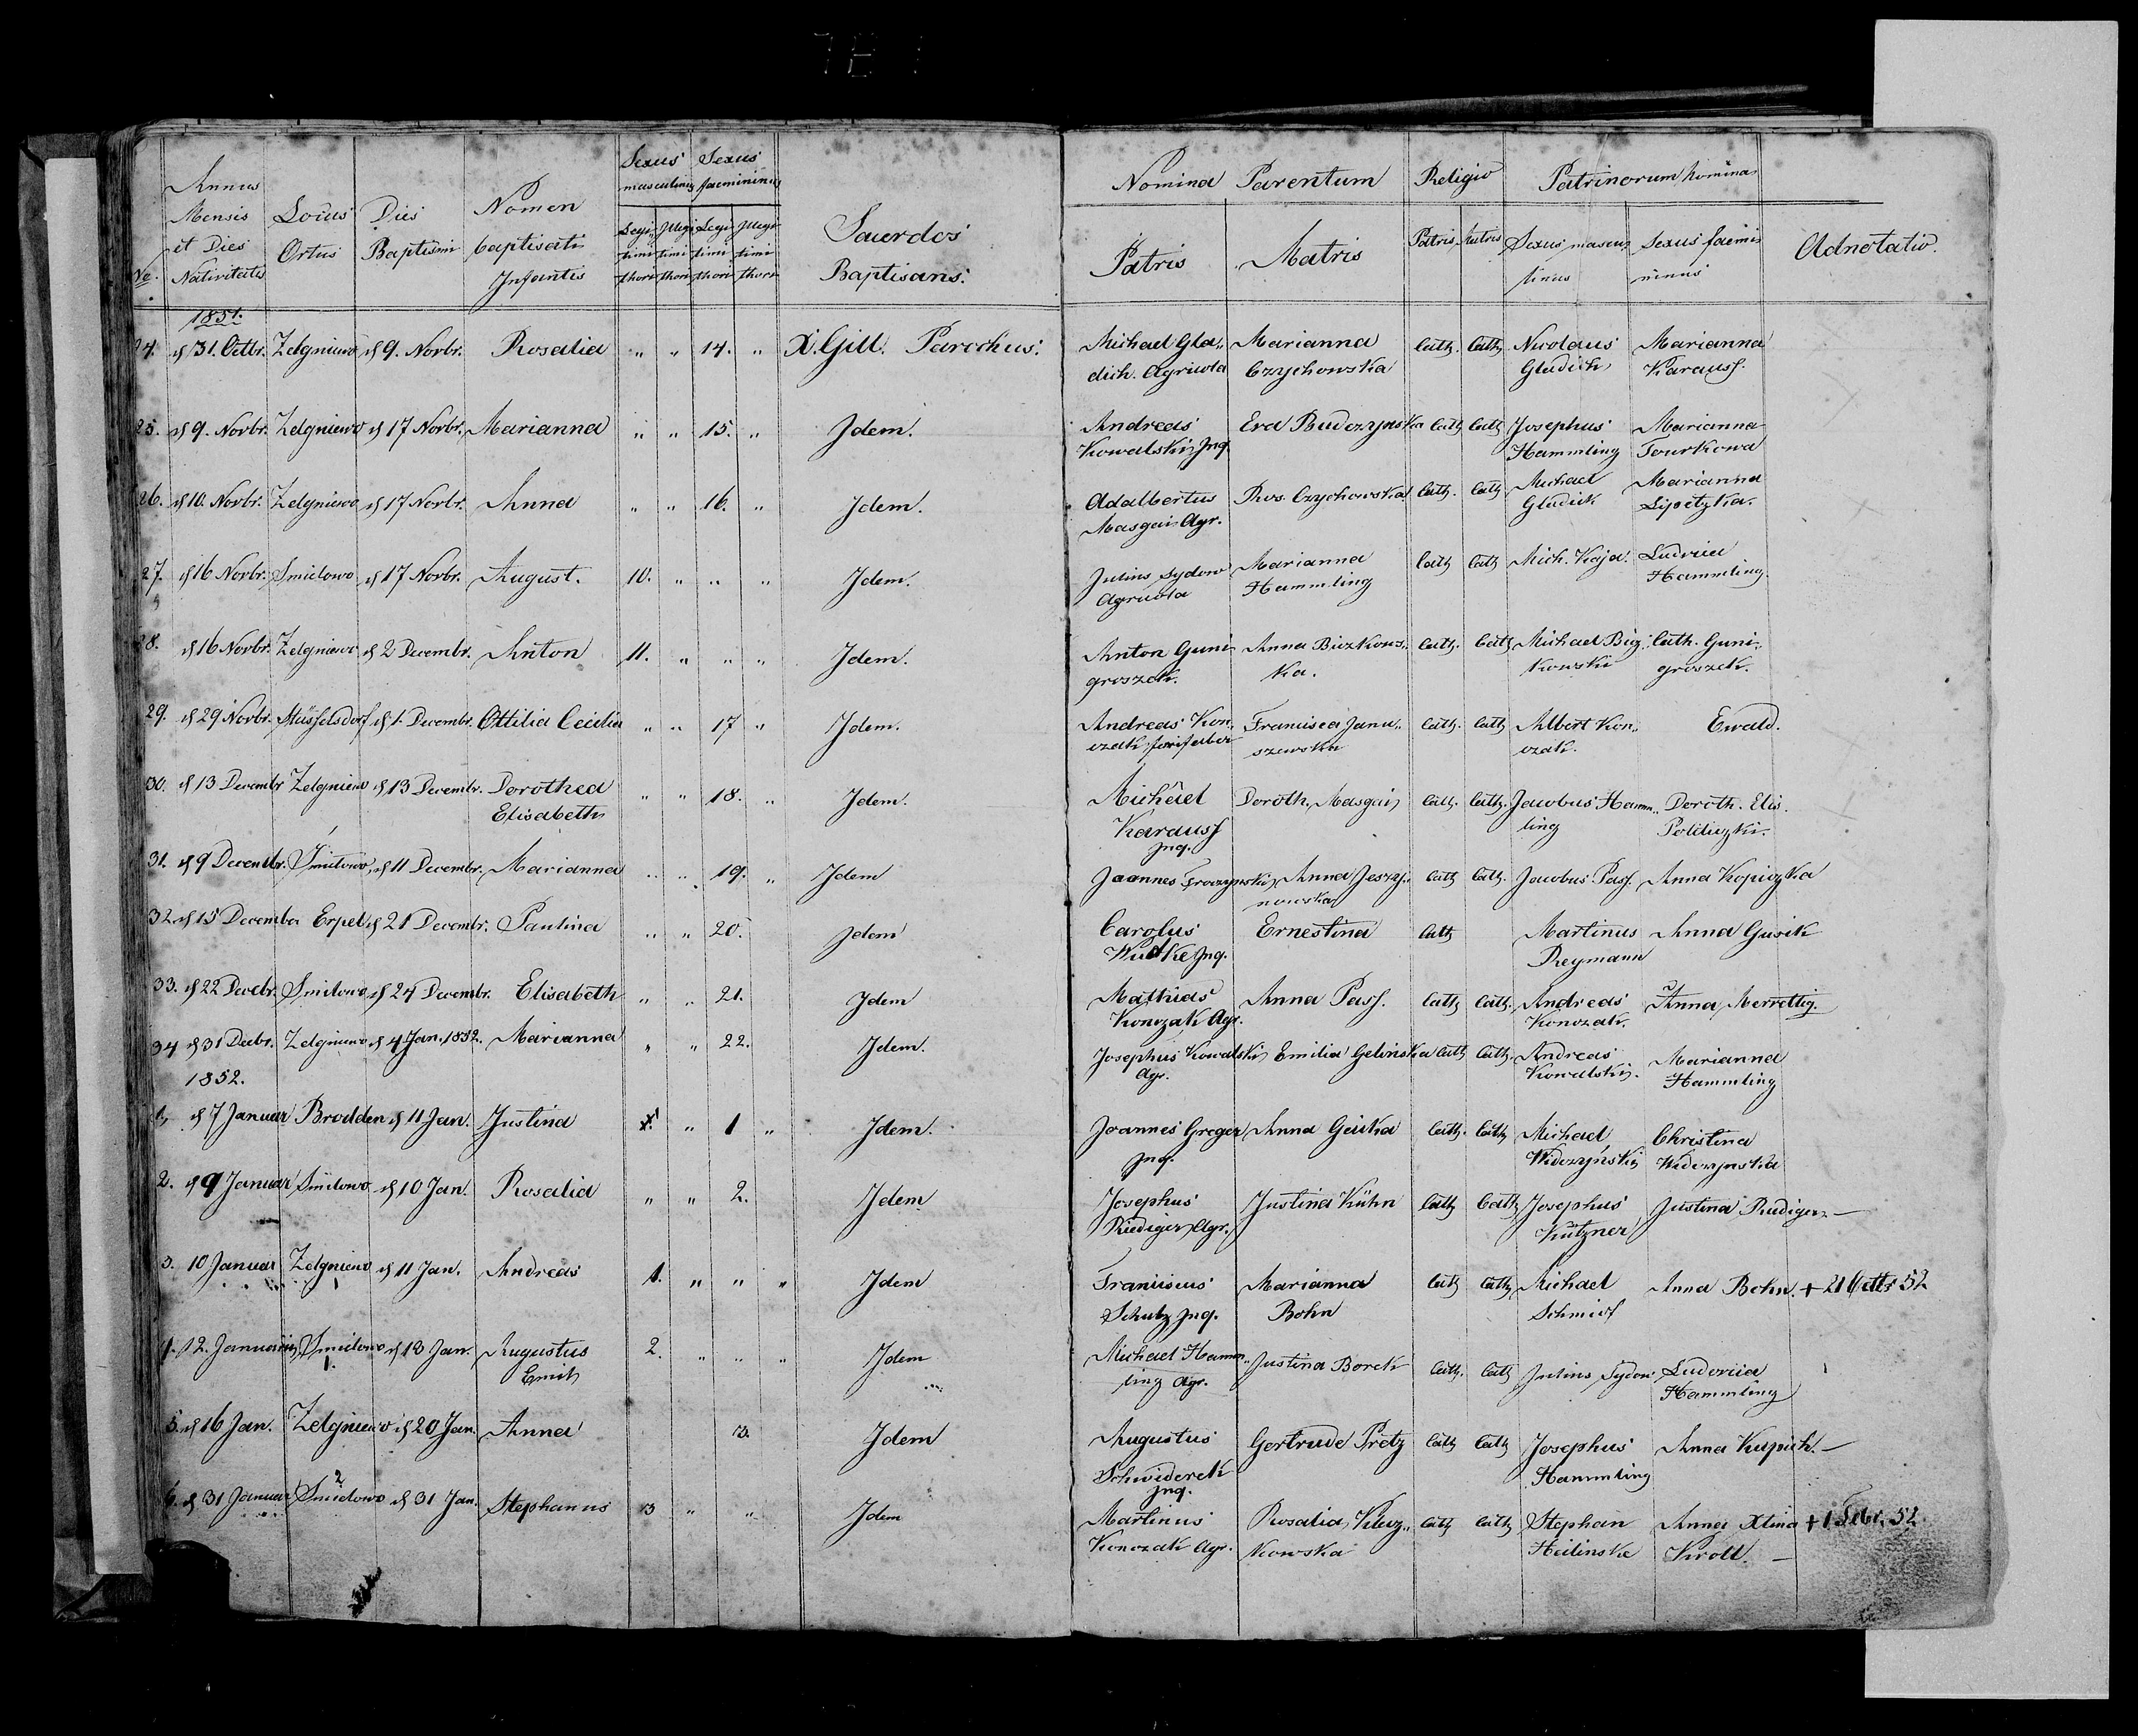 Annus
Mensis
et Dies
Nativitatis
No.
Locus
Ortus
Dies
Baptismi
Nomen
baptisati
Infantis
Sexus
masculinus
Sexus
faemininus
Legi„ Illegi Legi Illegi
timi timi timi timi
thori thori thori thori
Sacerdos
Baptisans.
Nomina Parentum Religio Patrinorum Nomina
Patris Matris Patris Matris Sexus mascu„
linus
Sexus faemi
ninus
Adnotatio.
1851.
24. d 31. Octbr. Zelgniewo d 9. Novbr. Rosalia „ „ 14. „ X. Gill. Parochus. Michael Gla„ Marianna Cath. Cath Nicolaus Marianna
dich. Agricola Czychowska Gladich Karauss.
25. d 9. Novbr. Zelgniewo d 17 Novbr. Marianna „ „ 15. „ Idem. Andreas Eva Budozynska Cath Cath Josephus Marianna
Kowalski Inq. Hammling Tourkowa
26. d 10. Novbr. Zelgniewo d 17 Novbr. Anna „ „ 16. „ Idem. Adalbertus Ros. Czychowska Cath. Cath Michael Marianna
Masgai Agr. Gladick Lipetzka.
27. d 16 Novbr. Smilowo d 17 Novbr. August. 10. „ „ „ Idem. Julius Sydow Marianna Cath Cath Mich. Kaja. Ludvica
Agricola Hammling Hammling.
28. d 16 Novbr. Zelgniewo d 2 Decembr. Anton 11. „ „ „ Idem. Anton Guni Anna Biczkows„ Cath. Cath Michael Bicz„ Cath. Guni„
groszek. ka. kowski groszek.
29. d 29 Novbr. d 1. Decembr. Ottilia Cecilia „ „ 17 „ Idem. Andreas Kon„ Francisca Janu„ Cath. Cath Albert Kon„ Ewald.
czak, szewska czak.
30. d 13 Decembr Zelgniewo d 13 Decembr. Dorothea „ „ 18. „ Idem. Michael Doroth. Masgai Cath. Cath. Jacobus Hamm„ Doroth. Elis.
Elisabeth Karauss ling
Inq.
31. d 9 Decembr. Smilowo d 11 Decembr. Marianna „ „ 19. „ Idem Joannes Anna Cath Cath. Jacobus Pass. Anna Kopiczka
nowska
32. d 15 Decembr Erpel d 21 Decembr. Paulina „ „ 20. Idem Carolus Ernestina Cath Martinus Anna Gusik
Wudtke Inq. Reymann
33. d 22 Decbr. Smilowo d 24 Decembr. Elisabeth „ „ 21. Idem Mathias Anna Pass. Cath Cath. Andreas Anna Merrettig.
Konczak Agr. Konczak.
34 d 31 Decbr. Zelgniewo d 4 Jan. 1852. Marianna „ „ 22. Idem. Josephus Kowalski Emilia Gelinska Cath Cath. Andreas Marianna
Agr. Kowalski. Hammling
1852.
1. d 7 Januar Brodden d 11 Jan. Justina „ 1 „ Idem. Joannes Greger Anna Geiska Cath. Cath Michael Christina
Inq. Widczyński Widczynska
2. d 9 Januar Smilowo d 10 Jan. Rosalia „ „ 2. Idem Josephus Justina Kühn Cath Cath Josephus Justina Rüdiger. —
Riediger Agr. Kützner
3. 10 Januar Zelgniewo d 11 Jan. Andreas 1. „ „ „ Idem Franciscus Marianna Cath Cath Michael Anna Bohn. + 21 Octbr 52
Schulz Inq. Bohn Schmidt
4. 12. Januarii Smilowo d 18 Jan. Augustus 2. „ „ „ Idem Michael Hamm„ Justina Borck Cath. Cath Julius Sydow Ludovica
1. Emil ling Agr. Hammling
5. d 16 Jan. Zelgniewo d 20 Jan. Anna 3. Idem Augustus Gertrude Pretz Cath Cath Josephus Anna Kupich. —
Schwiderek Hammling
Inq.
2
6. d 31 Januar Smilowo d 31 Jan. Stephanus 3 „ „ Idem Martinus Rosalia Klucz„ Cath Cath Stephan Anna Xtina + 1 Febr. 52.
Konczak Agr. kowska Heilinske Kroll. —